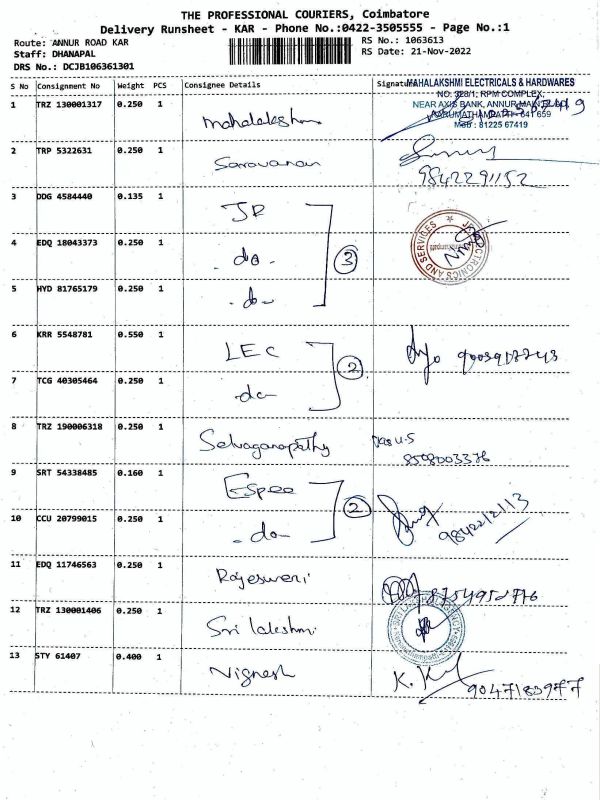 THE PROFESSIONAL COURIERS, Coimbatore
Delivery Runsheet - KAR - Phone No.:0422-3505555 - Page No.:1
Route: ANNUR ROAD KAR
RS No.: 1063613
Staff: DHANAPAL
RS Date: 21-Nov-2022
DRS No.: DCJB106361301
S No Consignment No Weight PCS Consignee Details Signature
MAHALAKSHMI ELECTRICALS & HARDWARES
NO: 328/1, RPM COMPLEX,
NEAR AXIS BANK, ANNUR MAIN
641 659
MOB : 81225 67419
1 TRZ 130001317 0.250 1 mahalakshmi
2 TRP 5322631 0.250 1 Saravanan 9842291152
3 DDG 4584440 0.135 1 JR
ELECTRONICS AND SERVICES
4 EDQ 18043373 0.250 1 .do. 3
5 HYD 81765179 0.250 1 .do-
6 KRR 5548781 0.550 1 LEC
7 TCG 40305464 0.250 1 .do- 2
8 TRZ 190006318 0.250 1 Selvaganapathy 8508003376
9 SRT 54338485 0.160 1 Espee
10 CCU 20799015 0.250 1 .do- 2 9842212113
11 EDQ 11746563 0.250 1 Rajesweri 8754952776
12 TRZ 130001406 0.250 1 Sri lakshmi
13 STY 61407 0.400 1 Vignesh 9047183977